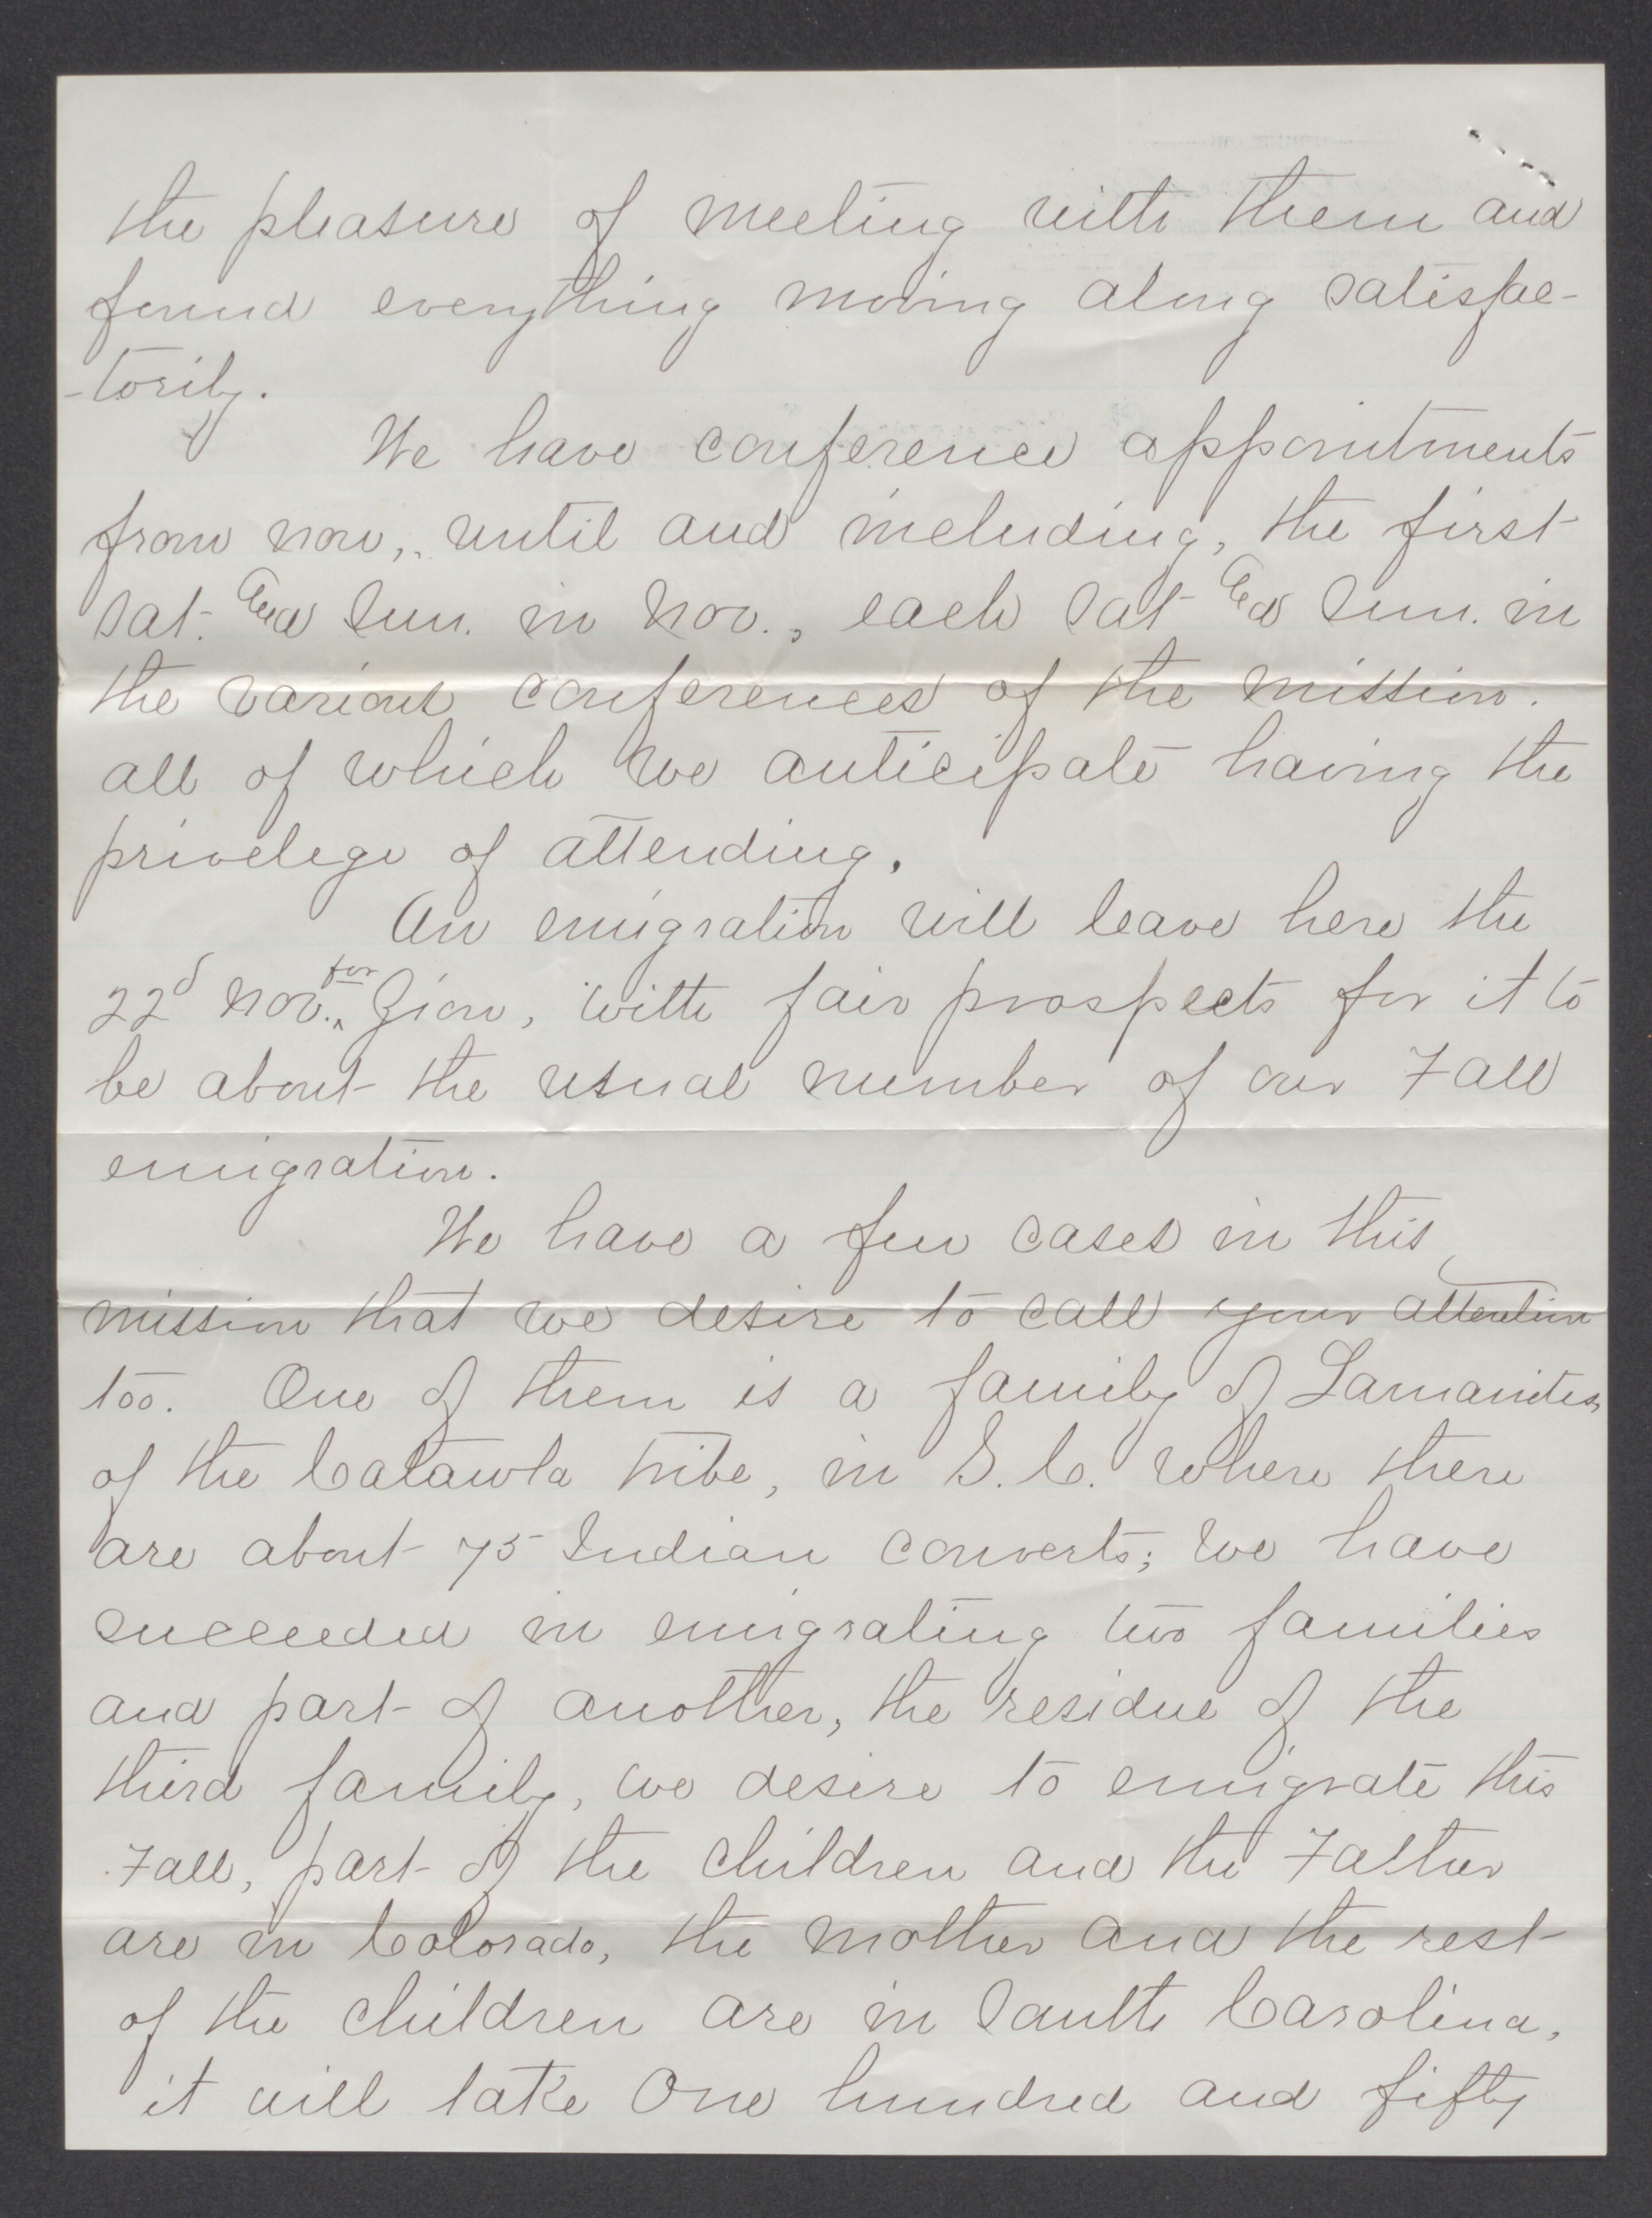 the pleasure of meeting with them and
found everything moving along satisfac-
-torily.
We have conference appointments
from now, until and including, the first
Sat. and Sun. in Nov., each Sat and Sun. in
the various conferences of the mission.
all of which we anticipate having the
privelege of attending.
An emigration will leave here the
22d Nov. for Zion, with fair prospects for it to
be about the usual number of our Fall
emigration.
We have a few cases in this
mission that we desire to call your attention
too. One of them is a family of Lamanites,
of the Catawba tribe, in S.C. where there
are about 75 Indian converts; we have
succeeded in emigrating two families
and part of another, the residue of the
third family, we desire to emigrate this
Fall, part of the children and the Father
are in Colorado, the mother and the rest
of the children are in South Carolina,
it will take One hundred and fifty